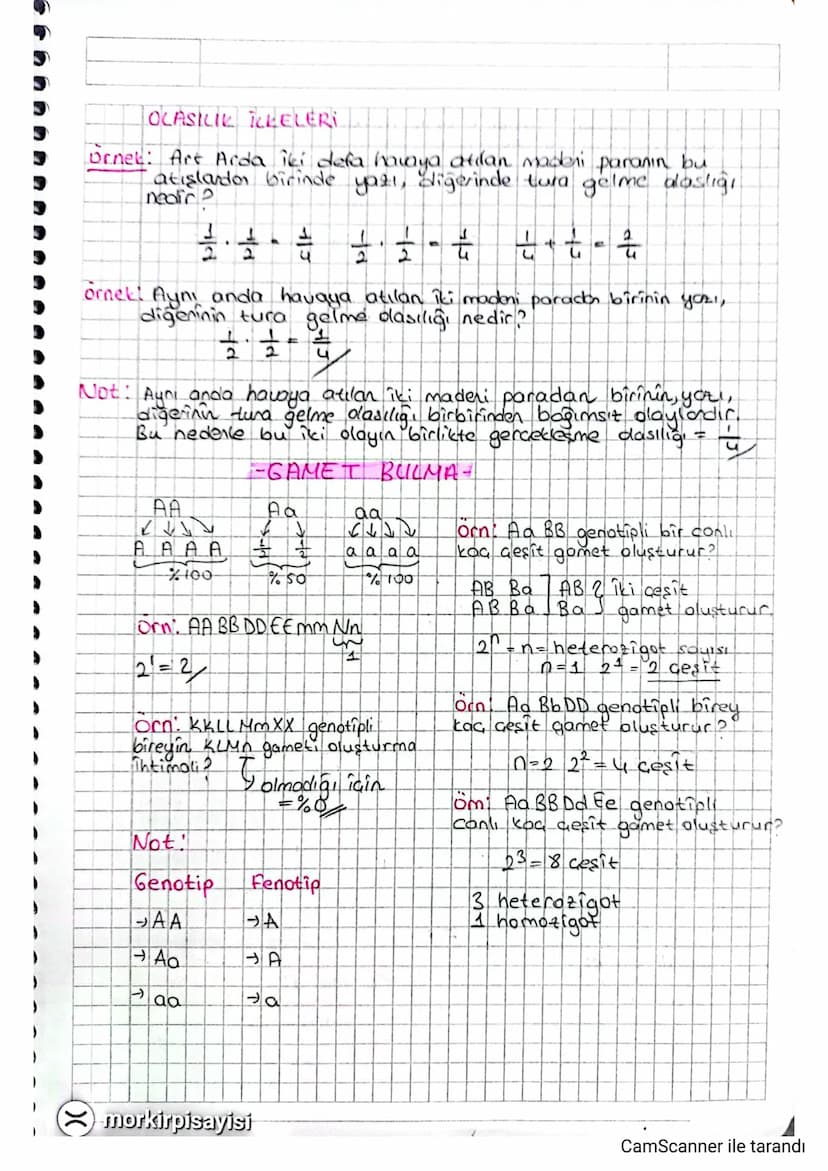 OLASILIK İLKELERİ
Örnek: Art Arda iki defa havaya atılan madeni paranın bu
atışlardan birinde yazı, diğerinde tura gelme olaslığı
nedir?
1/2 . 1/2 = 1/4 1/2 . 1/2 = 1/4 1/4 + 1/4 = 2/4
örnek: Aynı anda havaya atılan iki madeni paradan birinin yazı,
diğerinin tura gelme olasılığı nedir?
1/2 . 1/2 = 1/4
Not: Aynı anda havaya atılan iki madeni paradan birinin, yazı,
diğerinin tura gelme olasılığı birbirinden bağımsız olaylardır.
Bu nedenle bu iki olayın birlikte gerçekleşme olasılığı = 1/4
-GAMET BULMA-
AA Aa aa
A A A A 1/2 1/2 a a a a
%100 %50 %100
Örn: AABBDDEEmmNn
1
2¹ = 2
Örn: KKLLMmXX genotipli
bireyin KLMn gameti oluşturma
ihtimali?
olmadığı için
= %0
Not:
Genotip Fenotip
→AA →A
→Aa →A
→aa →a
Örn: Aa BB genotipli bir canlı
kaç çeşit gamet oluşturur?
AB Ba AB iki çeşit
AB Ba Ba gamet oluşturur.
2ⁿ = n = heterozigot sayısı
n=1 2¹ = 2 çeşit
Örn: Aa BbDD genotipli birey
kaç çeşit gamet oluşturur?
n=2 2² = 4 çeşit
Örn: Aa BB Dd Ee genotipli
canlı kaç çeşit gamet oluşturur?
2³ = 8 çeşit
3 heterozigot
1 homozigot
morkirpisayisi
CamScanner ile tarandı